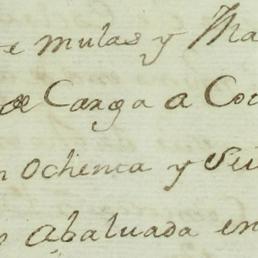 e mulas y Ma
de Carga a Co
n ochenta y sei
abaluada en